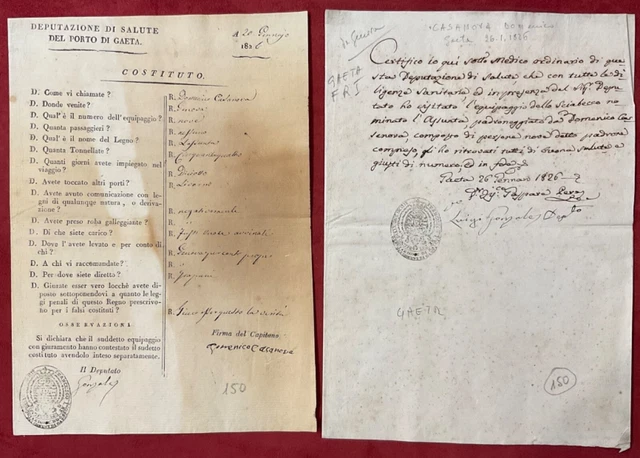 DEPUTAZIONE DI SALUTE
DEL PORTO DI GAETA.
A 26 Gennajo
1826
COSTITUTO.
D. Come vi chiamate?
R. Domenico Casanova
D. Donde venite?
R. Genova
D. Qual'è il numero dell'equipaggio?
R. nove
D. Quanta passaggieri?
R. nessuno
D. Qual'è il nome del Legno?
R. L'Assunta
D. Quanta Tonnellate?
R. Cinquantaquattro
D. Quanti giorni avete impiegato nel
viaggio?
R. Diciotto
D. Avete toccato altri porti?
R. Livorno
D. Avete avuto comunicazione con legni
di qualunque natura, o derivazione?
R. negativamente
D. Avete preso roba galleggiante?
R. no
D. Di che siete carico?
R.
D. Dove l'avete levato e per conto di
chi?
R. Genova per conto proprio
D. A chi vi raccomandate?
R.
D. Per dove siete diretto?
R.
D. Giurate esser vero locchè avete deposto sottoponendovi a quanto le leggi penali di questo Regno prescrivono per i falsi costituti?
R. Giuro che questa è la verità
OSSERVAZIONI
Firma del Capitano
Si dichiara che il suddetto equipaggio
con giuramento han contestato il sudetto
costituto avendolo inteso separatamente.
Domenico Casanova
Il Deputato
Gonzalez
150
da Genova
CASANOVA Domenico
Gaeta 26.1.1826
GAETA
FRJ
Certifico io qui sotto Medico ordinario di que
sta Deputazione di Salute che con tutta la di
ligenza Sanitaria ed in presenza del Sig.r Depu
tato ho visitato l'equipaggio dello Sciabecco no
minato l'Assunta padroneggiato da Domenico Ca
senova composto di persone nove detto padrone
compreso, gli ho ritrovati tutti di buona salute e
giusti di numero, ed in fede
Gaeta 26 Gennaro 1826
Luigi Gonzalez Dep.to
GAETA
150